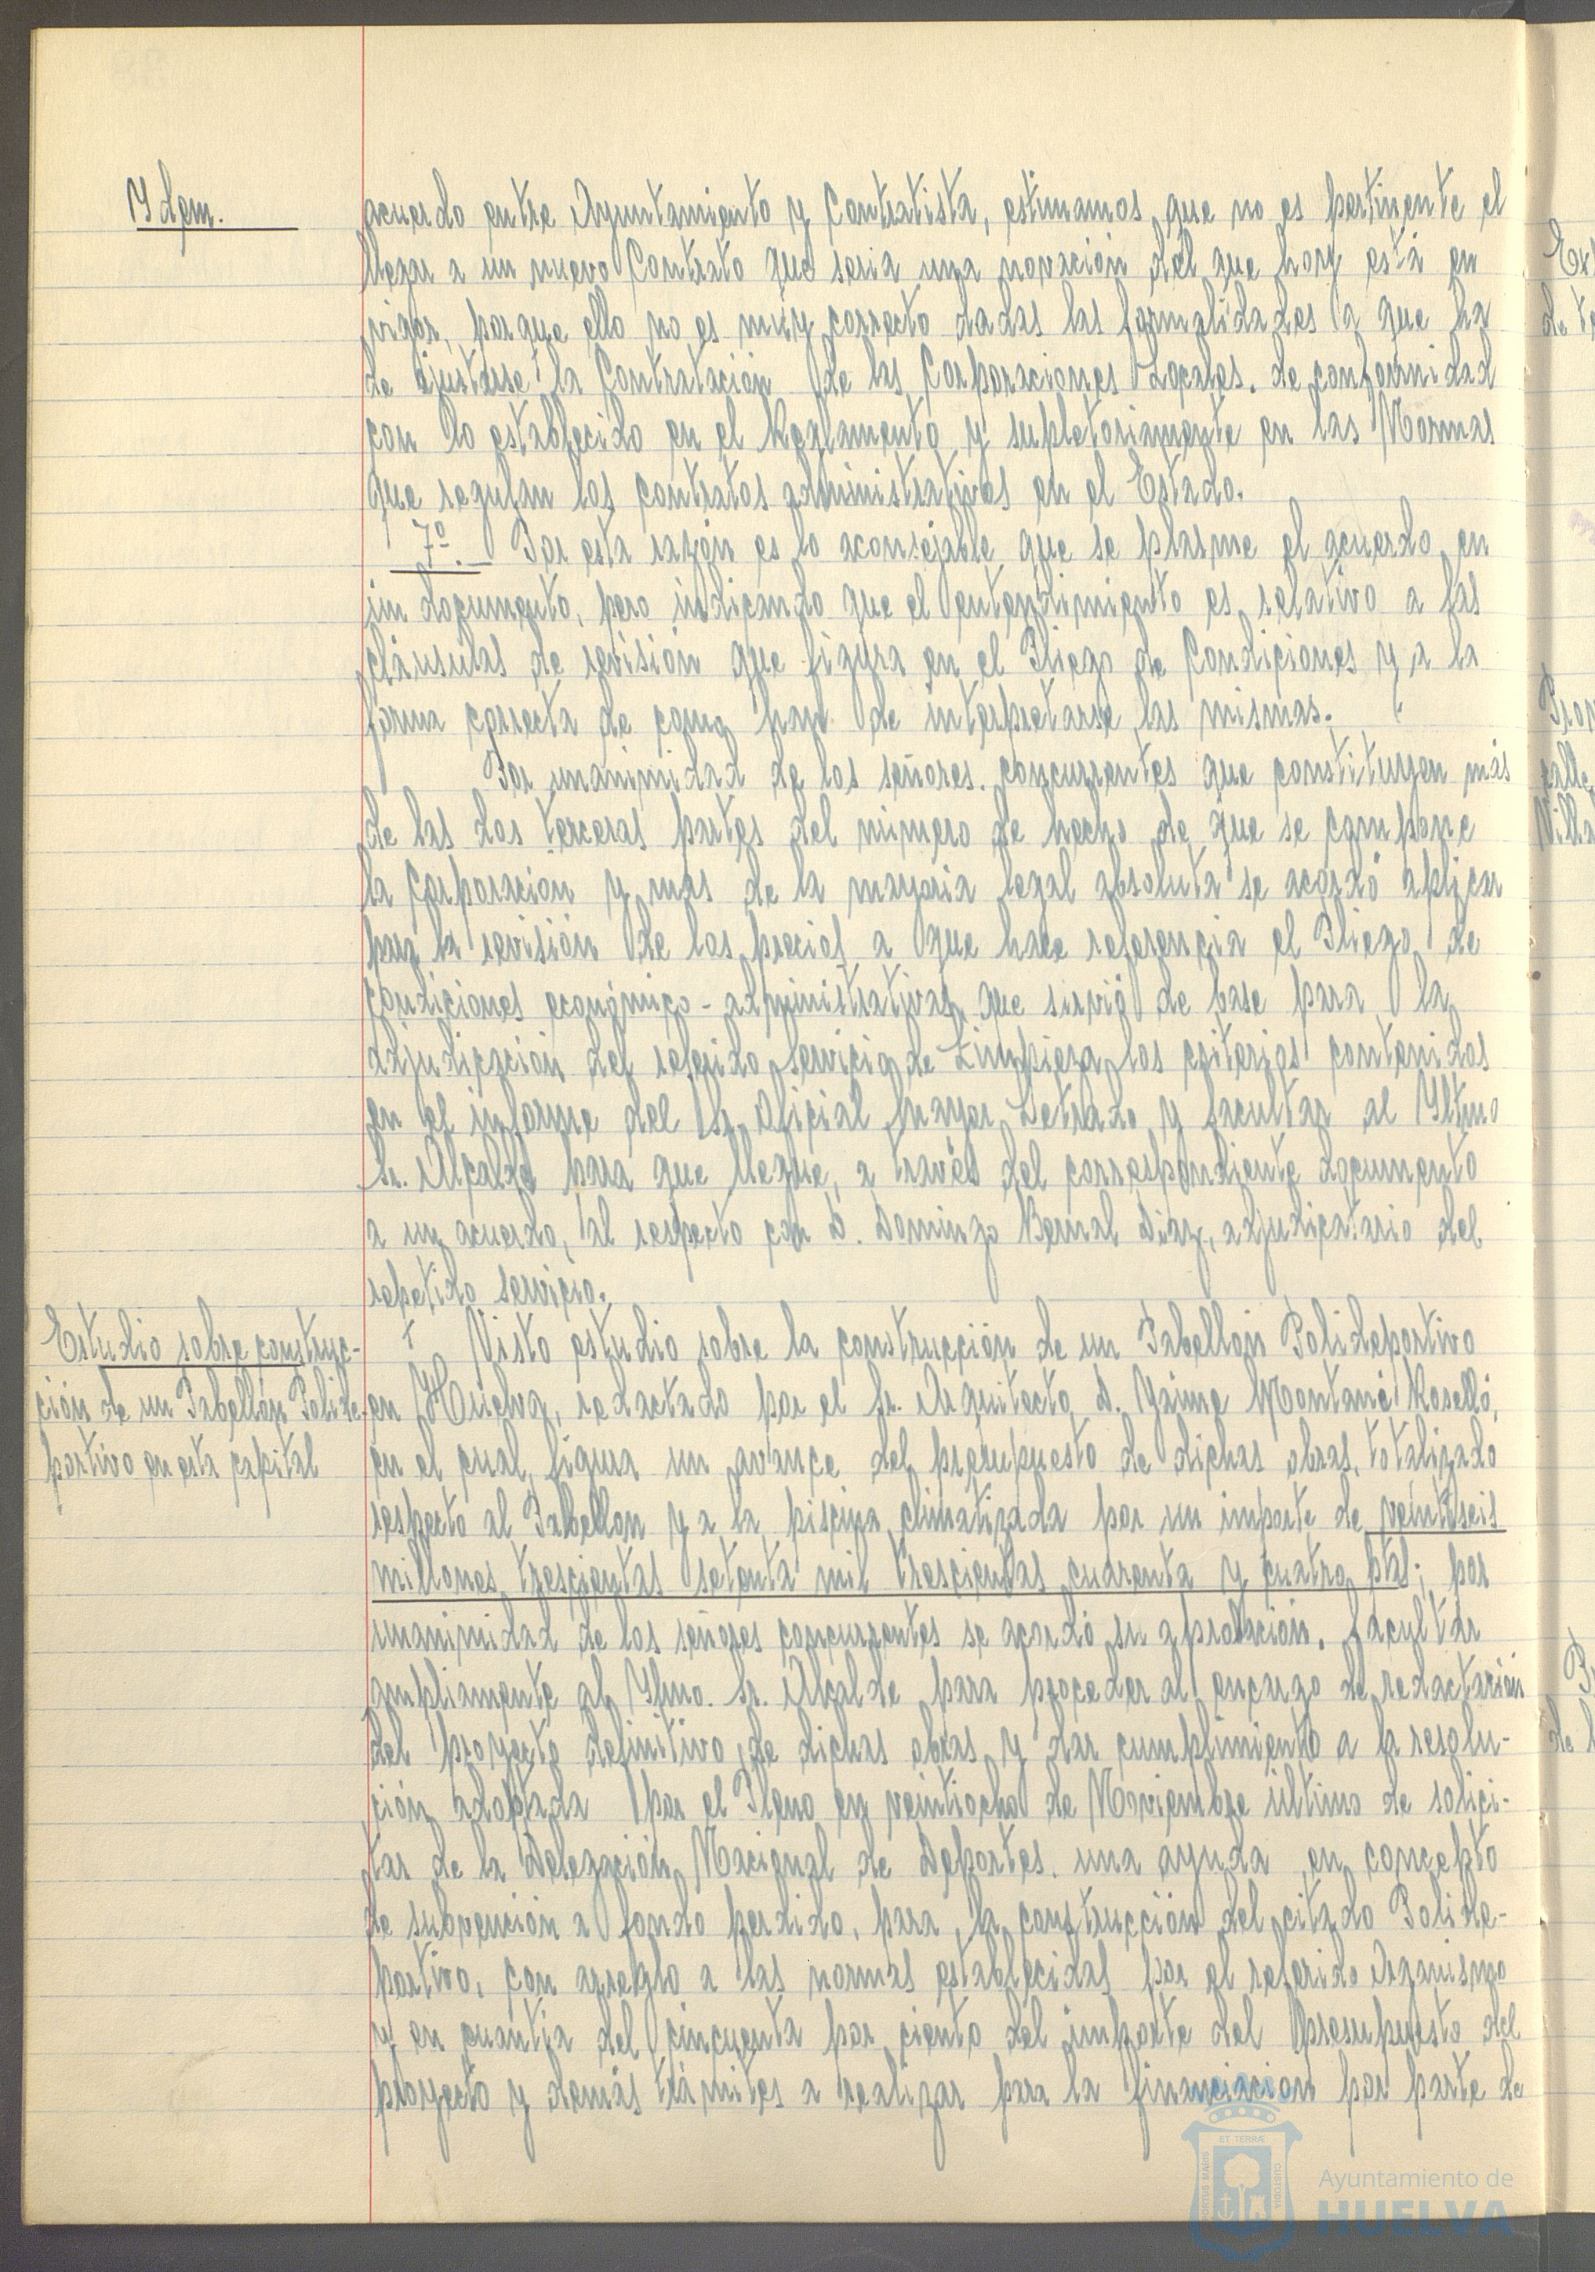 Ydem.
acuerdo entre Ayuntamiento y Contratista, estimamos que no es pertinente el
llegar a un nuevo Contrato que seria una novación del que hoy está en
vigor, porque ello no es muy correcto dadas las formalidades a que ha
de ajustarse la Contratación de las Corporaciones Locales. de conformidad
con lo establecido en el Reglamento y supletoriamente en las Normas
que regulan los contratos administrativos en el Estado.
7º.- Por esta razón es lo aconsejable que se plasme el acuerdo en
un documento, pero indicando que el entendimiento es relativo a las
cláusulas de revisión que figura en el Pliego de Condiciones y a la
forma correcta de como han de interpretarse las mismas.
Por unanimidad de los señores. concurrentes que constituyen más
de las dos terceras partes del número de hecho de que se compone
la Corporacion y mas de la mayoria legal absoluta se acordó aplicar
para la revisión de los precios a que hace referencia el Pliego de
condiciones económico-administrativas que sirvió de base para la
adjudicación del referido servicio de Limpieza los criterios contenidos
en el informe del Sr. Oficial Mayor Letrado y facultar al Yltmo
Sr. Alcalde para que llegue, a través del correspondiente documento
a un acuerdo, al respecto con D. Domingo Bernal Diaz, adjudicatario del
repetido servicio.
Estudio sobre construc-
ción de un Pabellón Polide-
portivo en esta capital
Visto estudio sobre la construcción de un Pabellón Polideportivo
en Huelva, redactado por el Sr. Arquitecto D. Yaime Montané Roselló,
en el cual figura un avance del presupuesto de dichas obras, totalizado
respecto al Pabellon y a la piscina climatizada por un importe de veintiseis
millones trescientas setenta mil trescientas cuarenta y cuatro ptas; por
unanimidad de los señores concurrentes se acordó su aprobación. facultar
ampliamente al Yltmo. Sr. Alcalde para proceder al encargo de redactación
del proyecto definitivo de dichas obras y dar cumplimiento a la resolu-
ción adoptada por el Pleno en veintiocho de Noviembre último de solici-
tar de la Delegación Nacional de Deportes. una ayuda en concepto
de subvención a fondo perdido, para la construcción del citado Polide-
portivo, con arreglo a las normas establecidas por el referido Organismo
y en cuantía del cincuenta por ciento del importe del presupuesto del
proyecto y demás trámites a realizar para la financiacion por parte de
PORTUS MARIS
ET TERRÆ
CUSTODIA
Ayuntamiento de
HUELVA